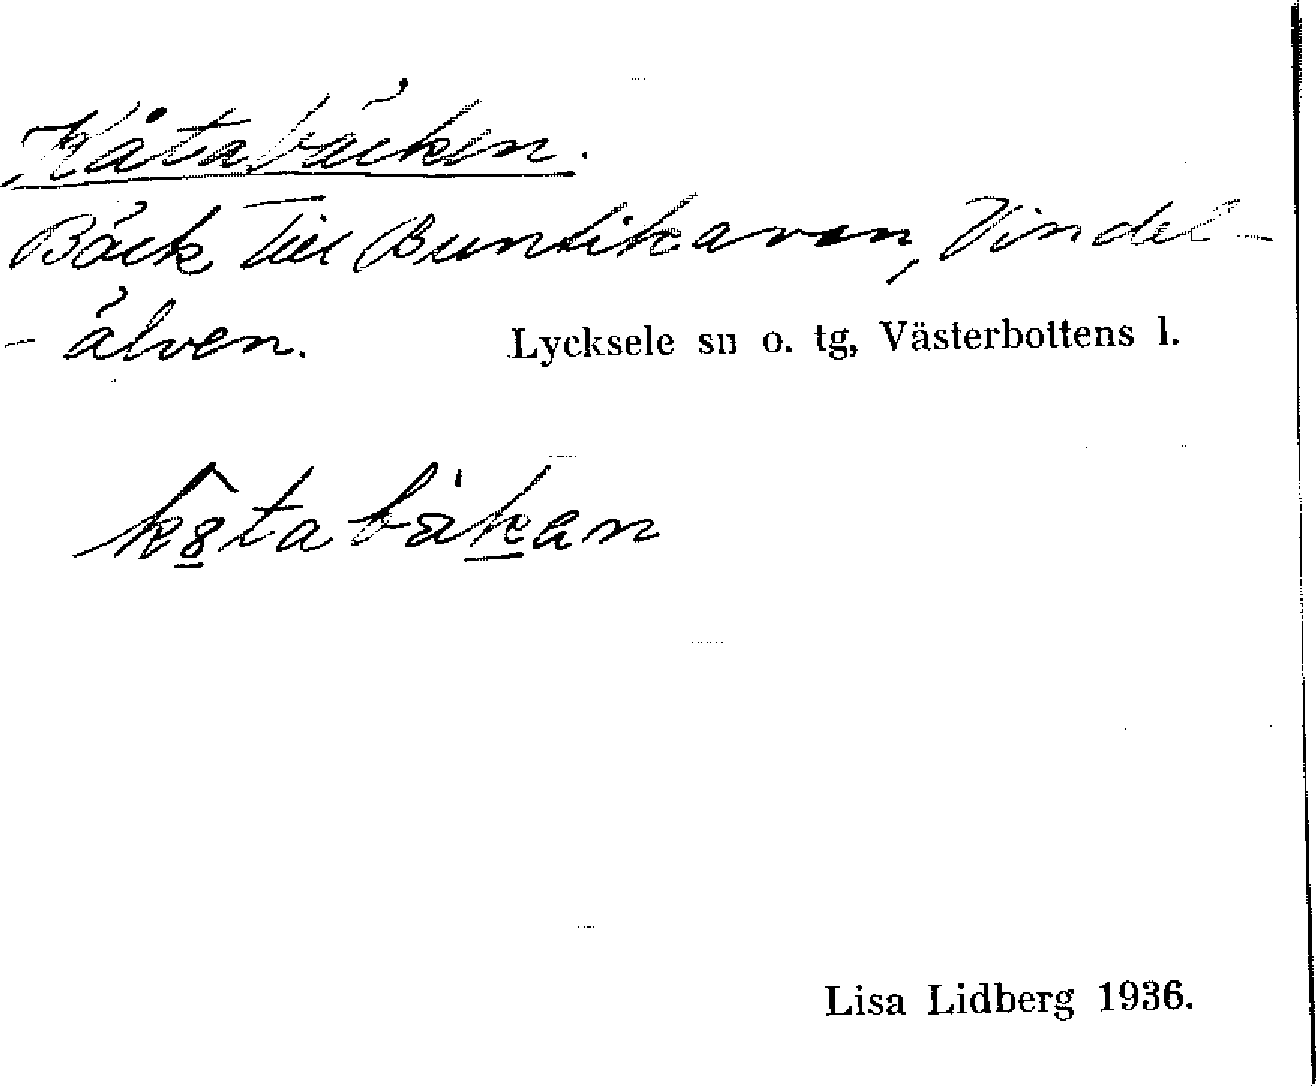 Kåtabäcken.
Bäck till Buntikavan, Vindel-
- älven.
Lycksele sn o. tg, Västerbottens l.
Lisa Lidberg 1936.